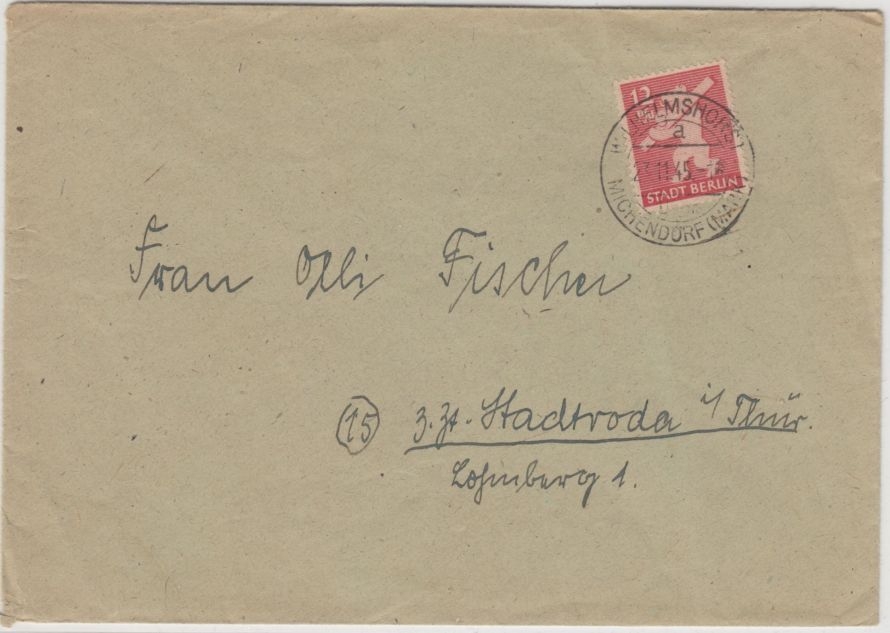 12
STADT BERLIN
WILHELMSHORST
a
27.11.45
MICHENDORF (MARK)
Frau Olli Fischer
(15) z. Zt. Stadtroda i/Thür.
Lohmberg 1.